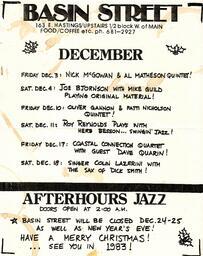 BASIN STREET
163 E. HASTINGS/UPSTAIRS 1/2 block W. of MAIN
FOOD/COFFEE etc. ph. 681-2927
DECEMBER
FRIDAY DEC. 3: NICK McGOWAN & AL MATHESON QUINTET!
SAT. DEC. 4: JOE BJORNSON WITH MIKE GUILD
PLAYING ORIGINAL MATERIAL!
FRIDAY DEC. 10: OLIVER GANNON & PATTI NICHOLSON
QUINTET!
SAT. DEC. 11: ROY REYNOLDS PLAYS WITH
HERB BESSON... SWINGIN' JAZZ!
FRIDAY DEC. 17: COASTAL CONNECTION QUARTET
WITH GUEST DAVE QUARIN!
SAT. DEC. 18: SINGER COLIN LAZERINI WITH
THE SAX OF DICK SMITH!
AFTERHOURS JAZZ
DOORS OPEN AT 2:00 A.M.
★ BASIN STREET WILL BE CLOSED DEC. 24-25
AS WELL AS NEW YEAR'S EVE!
HAVE A MERRY CHRISTMAS!
... SEE YOU IN 1983!